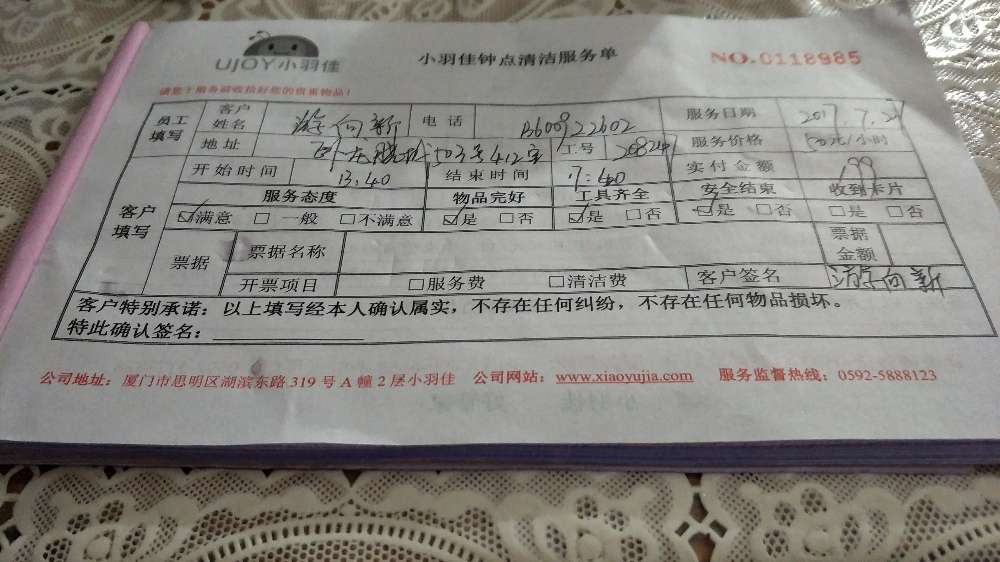 UJOY小羽佳
小羽佳钟点清洁服务单
NO.0118985
请您于服务前收拾好您的贵重物品!
员工填写 客户姓名 游向新 电话 服务日期 2017.7.2
地址 503号412室 工号 服务价格 /小时
开始时间 13:40 结束时间 17:40 实付金额 199
客户填写 服务态度 物品完好 工具齐全 安全结束 收到卡片
☑满意 □一般 □不满意 ☑是 □否 ☑是 □否 ☑是 □否 □是 □否
票据 票据名称 票据金额
开票项目 □服务费 □清洁费 客户签名 游向新
客户特别承诺:以上填写经本人确认属实,不存在任何纠纷,不存在任何物品损坏。
特此确认签名:
公司地址:厦门市思明区湖滨东路319号A幢2层小羽佳 公司网站:www.xiaoyujia.com 服务监督热线:0592-5888123